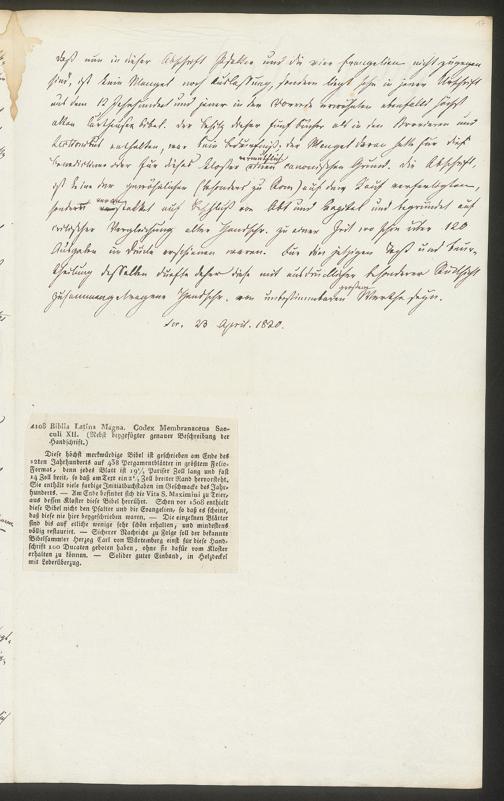 Daß nun in dieser Abschrift Psalter und die vier Evangelien nicht zugegen
sind, ist kein Mangel noch Auslassung, sondern liegt schon in jener Urschrift
aus dem 12 Jahrhundert und jener in der Vorrede erwähnten ebenfalls höchst
alten Bibel. Der Besitz dieser fünf Bücher als in den Brevieren und
enthalten, war kein Bedürfniß; der Mangel daran hatte für dieß
Benedictiner oder für dieses Kloster vermuthlich einen canonischen Grund. Die Abschrift,
ist keine der gewöhnlichen (besonders zu Rom) auf den Kauf verfertigten,
sondern veranstaltet auf Beschluß von Abt und Kapitel und begründet auf
critischer Vergleichung alter Handschr. zu einer Zeit wo schon über 120
Ausgaben im Drucke erschienen waren. Für den jetzigen Text und Beur-
theilung desselben dürfte daher diese mit ausdrücklicher besonderer Umsicht
zusammengetragene Handschr. von unbestimmbarem großem Werthe seyn.
23 April. 1820.
2108 Biblia Latina Magna. Codex Membranaceus Sae-
culi XII. (Nebst beygefügter genauer Beschreibung der
Handschrift.)
Diese höchst merkwürdige Bibel ist geschrieben am Ende des
12ten Jahrhunderts auf 438 Pergamentblätter in größtem Folio-
Format, denn jedes Blatt ist 19½ Pariser Zoll lang und fast
14 Zoll breit, so daß am Text ein 2½ Zoll breiter Rand hervorsteht.
Sie enthält viele farbige Initialbuchstaben im Geschmacke des Jahr-
hunderts. — Am Ende befindet sich die Vita S. Maximini zu Trier,
aus dessen Kloster diese Bibel herrührt. Schon vor 1508 enthielt
diese Bibel nicht den Psalter und die Evangelien, so daß es scheint,
daß diese nie hier beygeschrieben waren. — Die einzelnen Blätter
sind bis auf etliche wenige sehr schön erhalten, und mindestens
völlig restaurirt. — Sicherer Nachricht zu Folge soll der bekannte
Bibelsammler Herzog Carl von Würtemberg einst für diese Hand-
schrift 100 Ducaten geboten haben, ohne sie dafür vom Kloster
erhalten zu können. — Solider guter Einband, in Holzdeckel
mit Lederüberzug.